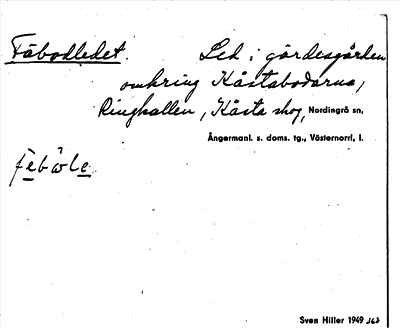 Fäbodledet. Led i gärdesgården
omkring Kåstabodarna,
Ringkallen, Kåsta skog, Nordingrå sn,
Ångermanl. s. doms. tg., Västernorrl. l.
Sven Hiller 1949